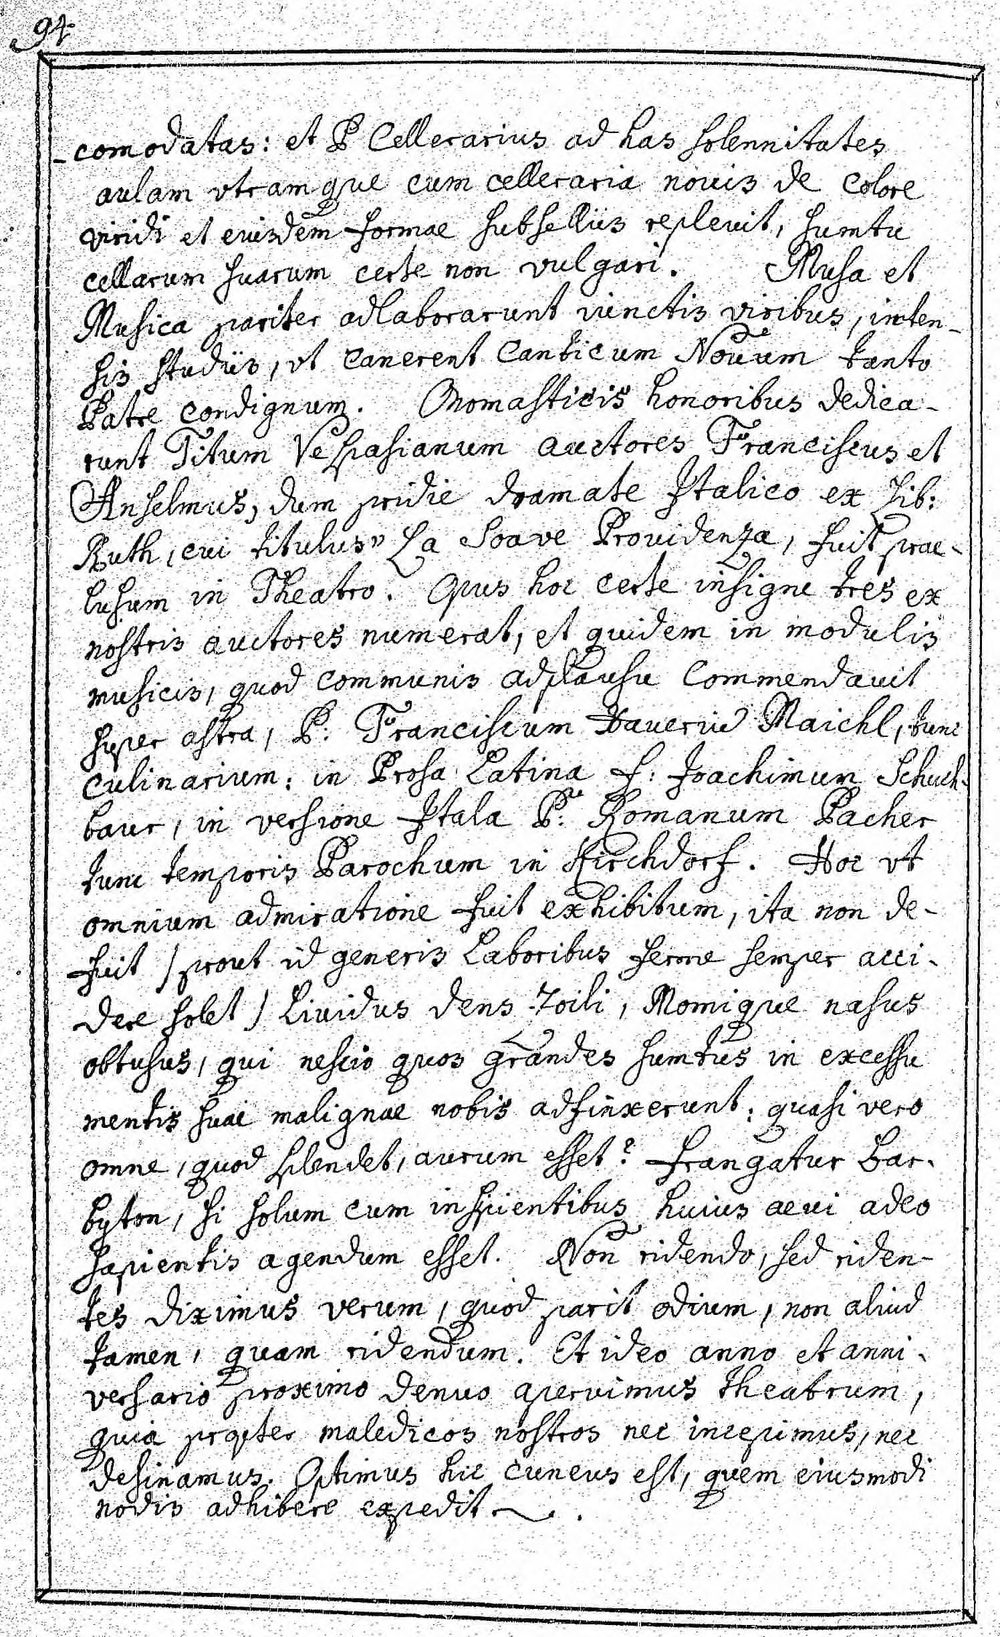 94
-comodatas: et P Cellerarius ad has solennitates
aulam vtramque cum celleraria nouis de colore
viridi et eiusdem formae subselliis repleuit, sumtu
cellarum suarum certe non vulgari. Musa et
Musica pariter adlaborarunt iunctis viribus, inten-
sis studiis, vt canerent Canticum Nouum tanto
Patre condignum. Onomasticis honoribus dedica-
runt Titum Vespasianum auctores Franciscus et
Anselmus, dum pridie dramate Italico ex Lib:
Ruth, cui titulus" La Soave Prouidenza, fuit prae-
lusum in Theatro. Opus hoc certe insigne tres ex
nostris auctores numerat, et quidem in modulis
musicis, quod communis adplausu commendauit
super astra, P: Franciscum Xaueriu Maichl, tunc
culinarium: in Prosa Latina f: Joachimum Schuch-
baur, in versione Itala P: Romanum Pacher
tunc temporis Parochum in Kirchdorf. Hoc vt
omnium admiratione fuit exhibitum, ita non de-
fuit /prout id generis Laboribus ferme semper acci-
dere solet/ Liuidus dens Zoili, Momique nasus
obtusus, qui nescio quos grandes sumtus in excessu
mentis suae malignae nobis adfinxerunt: quasi vero
omne, quod splendet, aurum esset? frangatur Bar-
byton, si solum cum insipientibus huius aeui adeo
sapientis agendum esset. Non ridendo, sed riden-
tes diximus verum, quod parit odium, non aliud
tamen, quam ridendum. Et ideo anno et anni-
versario proximo denuo aperuimus theatrum,
quia propter maledicos nostros nec incepimus, nec
desinamus. Optimus hic cuneus est, quem eiusmodi
nodis adhibere expedit.